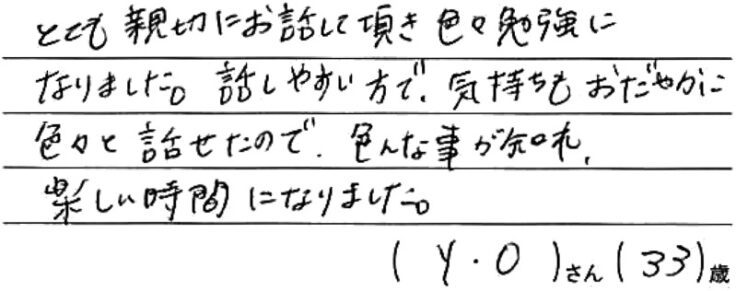 とても親切にお話して頂き色々勉強に
なりました。話しやすい方で、気持ちもおだやかに
色々と話せたので、色んな事が知れ、
楽しい時間になりました。
(Y・O)さん(33)歳